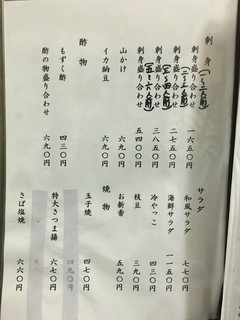 刺身
刺身盛り合わせ(一~二人前) 一六五〇円
刺身盛り合わせ 二七五〇円
刺身盛り合わせ(三~四人前) 三八五〇円
刺身盛り合わせ(五~六人前) 五四〇〇円
山かけ 六九〇円
イカ納豆 六九〇円
酢物
もずく酢 四三〇円
酢の物盛り合わせ 六九〇円
サラダ
和風サラダ 七七〇円
海鮮サラダ 一一五〇円
冷やっこ 四三〇円
枝豆 三九〇円
お新香 五九〇円
焼物
玉子焼 四七〇円
特大さつま揚 六七〇円
さば塩焼 六六〇円